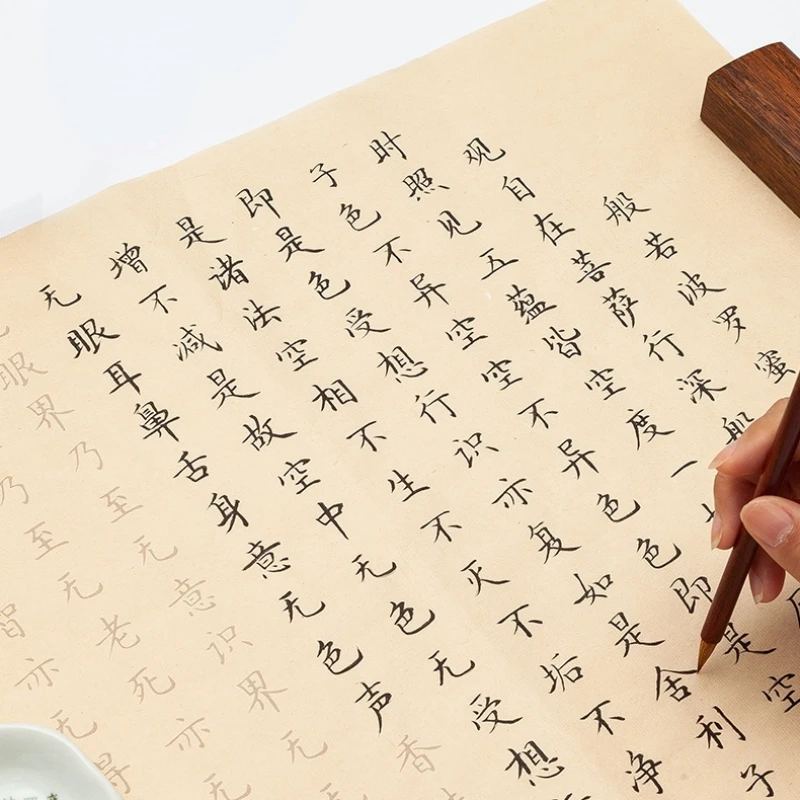 般若波罗蜜
观自在菩萨行深般
时照见五蕴皆空度一
子色不异空空不异色色即是空
即是色受想行识亦复如是舍利子
是诸法空相不生不灭不垢不净
增不减是故空中无色无受想
无眼耳鼻舌身意无色声香
无眼界乃至无意识界无
乃至无老死亦无
智亦无得